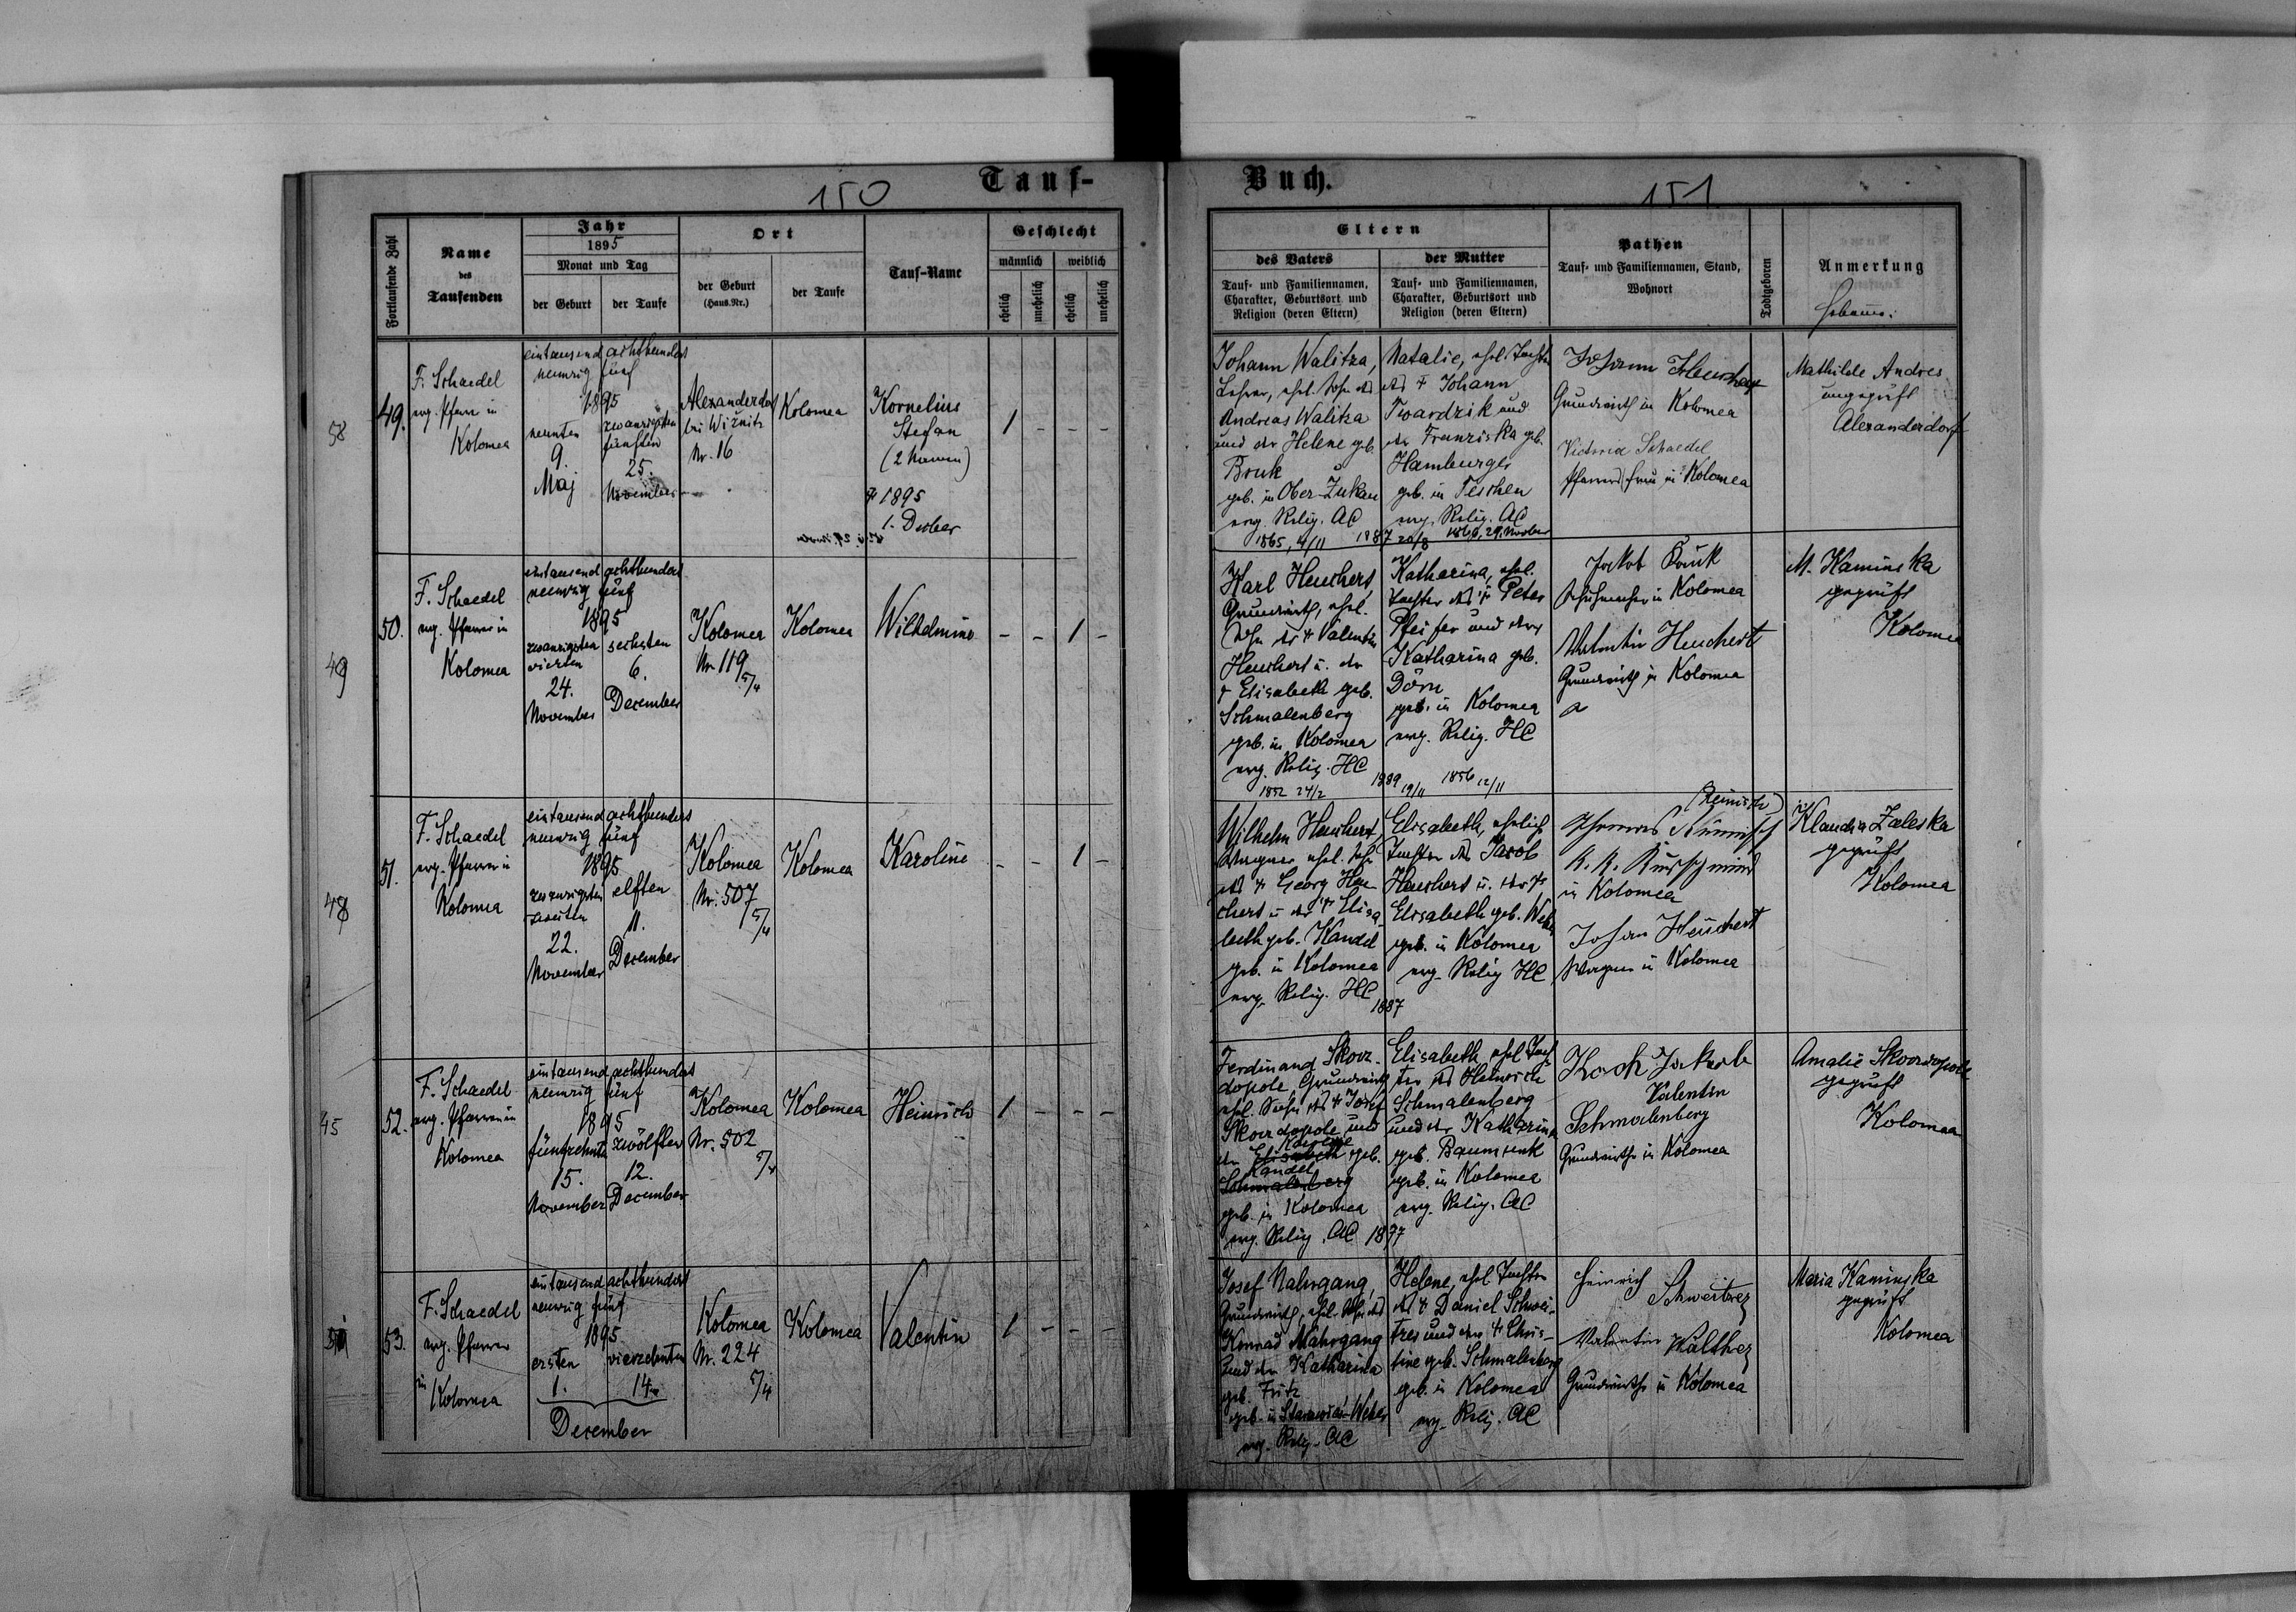 150
Tauf-
Fortlaufende Zahl
Name
des
Taufenden
Jahr
1895
Monat und Tag
der Geburt
der Taufe
Ort
der Geburt
(Haus-Nr.)
der Taufe
Tauf-Name
Geschlecht
männlich
weiblich
ehelich
unehelich
ehelich
unehelich
58
49.
F. Schaedel
evg. Pfarrer in
Kolomea
eintausend achthundert
neunzig fünf
1895
neunten
9.
Maj
zwanzigsten
fünften
25.
November
Alexanderdorf
bei Wiżnitz
Nr. 16
Kolomea
Kornelius
Stefan
(2 Namen)
1895
1. Decber
1 - - -
49
50.
F. Schaedel
evg. Pfarrer in
Kolomea
eintausend achthundert
neunzig fünf
1895
zwanzigsten
vierten
24.
November
sechsten
6.
December
Kolomea
Nr. 119
Kolomea
Wilhelmine
- - 1 -
48
51.
F. Schaedel
evg. Pfarrer in
Kolomea
eintausend achthundert
neunzig fünf
1895
zwanzigsten
zweiten
22.
November
elften
11.
December
Kolomea
Nr. 507
Kolomea
Karoline
- - 1 -
45
52.
F. Schaedel
evg. Pfarrer in
Kolomea
eintausend achthundert
neunzig fünf
1895
fünfzehnten
15.
November
zwölften
12.
December
Kolomea
Nr. 502
Kolomea
Heinrich
1 - - -
53.
F. Schaedel
evg. Pfarrer
in
Kolomea
eintausend achthundert
neunzig fünf
1895
ersten
1.
vierzehnten
14.
December
Kolomea
Nr. 224
Kolomea
Valentin
1 - - -
Buch.
151
Eltern
des Vaters
Tauf- und Familiennamen,
Charakter, Geburtsort und
Religion (deren Eltern)
der Mutter
Tauf- und Familiennamen,
Charakter, Geburtsort und
Religion (deren Eltern)
Pathen
Tauf- und Familiennamen, Stand,
Wohnort
Todtgeboren
Anmerkung
Johann Walitza,
Lehrer, ehel. Sohn des
Andreas Walitza
und der Helene geb.
Bruk
geb. in Ober-Zukau
evg. Relig. AC
1865, 4/11
1887 20/8
Natalie, ehel. Tochter
des + Johann
Twardzik und
der Franziska geb.
Hamburger
geb. in Teschen
evg. Relig. AC
Johann
Grundwirth in Kolomea
Victoria Schaedel
Pfarrersfrau in Kolomea
Mathilde Andres
ungeprüft
Alexanderdorf
Karl Heuchert,
Grundwirth, ehel.
Sohn des + Valentin
Heuchert u. der
+ Elisabeth geb.
Schmalenberg
geb. in Kolomea
evg. Relig. HC
1852 24/2
1889 19/11
Katharina, ehel.
Tochter des + Peter
Pfeifer und der
Katharina geb.
Dörn
geb. in Kolomea
evg. Relig. HC
1856 12/11
Jakob
Schuhmacher in Kolomea
Valentin Heuchert
Grundwirth in Kolomea
M. Kaminska
geprüft
Kolomea
Wilhelm Heuchert,
Wagner ehel. Sohn
des + Georg Heu-
chert u der + Elisa-
beth geb. Kandel
geb. in Kolomea
evg. Relig. HC
1887
Elisabeth, ehelich
Tochter des Jacob
Heuchert u. der +
Elisabeth geb. Weber
geb. in Kolomea
evg. Relig HC
in Kolomea
Johan Heuchert
Wagner in Kolomea
Klaudia Zaleska
geprüft
Kolomea
Ferdinand Skorz-
dopole, Grundwirth
ehel. Sohn des + Josef
Skorzdopole und
der Elisabeth geb.
Kandel
Schmalenberg
geb. in Kolomea
evg. Relig. AC
Elisabeth, ehel Toch-
ter des Heinrich
Schmalenberg
und der Katharina
geb. Baumunk
geb. in Kolomea
evg. Relig. AC
Koch Jakob
Valentin
Schmalenberg
Grundwirthe in Kolomea
Amalie Skorzdopole
geprüft
Kolomea
Josef Nahrgang,
Grundwirth, ehel. Sohn des
Konrad Nahrgang
und der Katharina
geb. Fritz
evg. Relig. AC
Helene, ehel. Tochter
des + Daniel Schwei-
tzer und der + Chris-
tine geb. Schmalenberg
geb. in Kolomea
evg. Relig. AC
Heinrich
Schweitzer
Valentin Walther
Grundwirthe in Kolomea
Maria Kaminska
geprüft
Kolomea